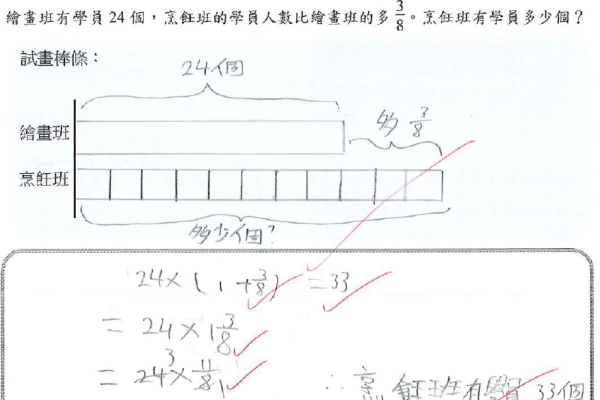 繪畫班有學員 24 個，烹飪班的學員人數比繪畫班的多 3/8。烹飪班有學員多少個？
試畫棒條：
24個
繪畫班
多 3/8
烹飪班
多少個？
24×(1+3/8) =33
= 24×1 3/8
= 24 3 × 11/8 1
∴ 烹飪班有學員 33個